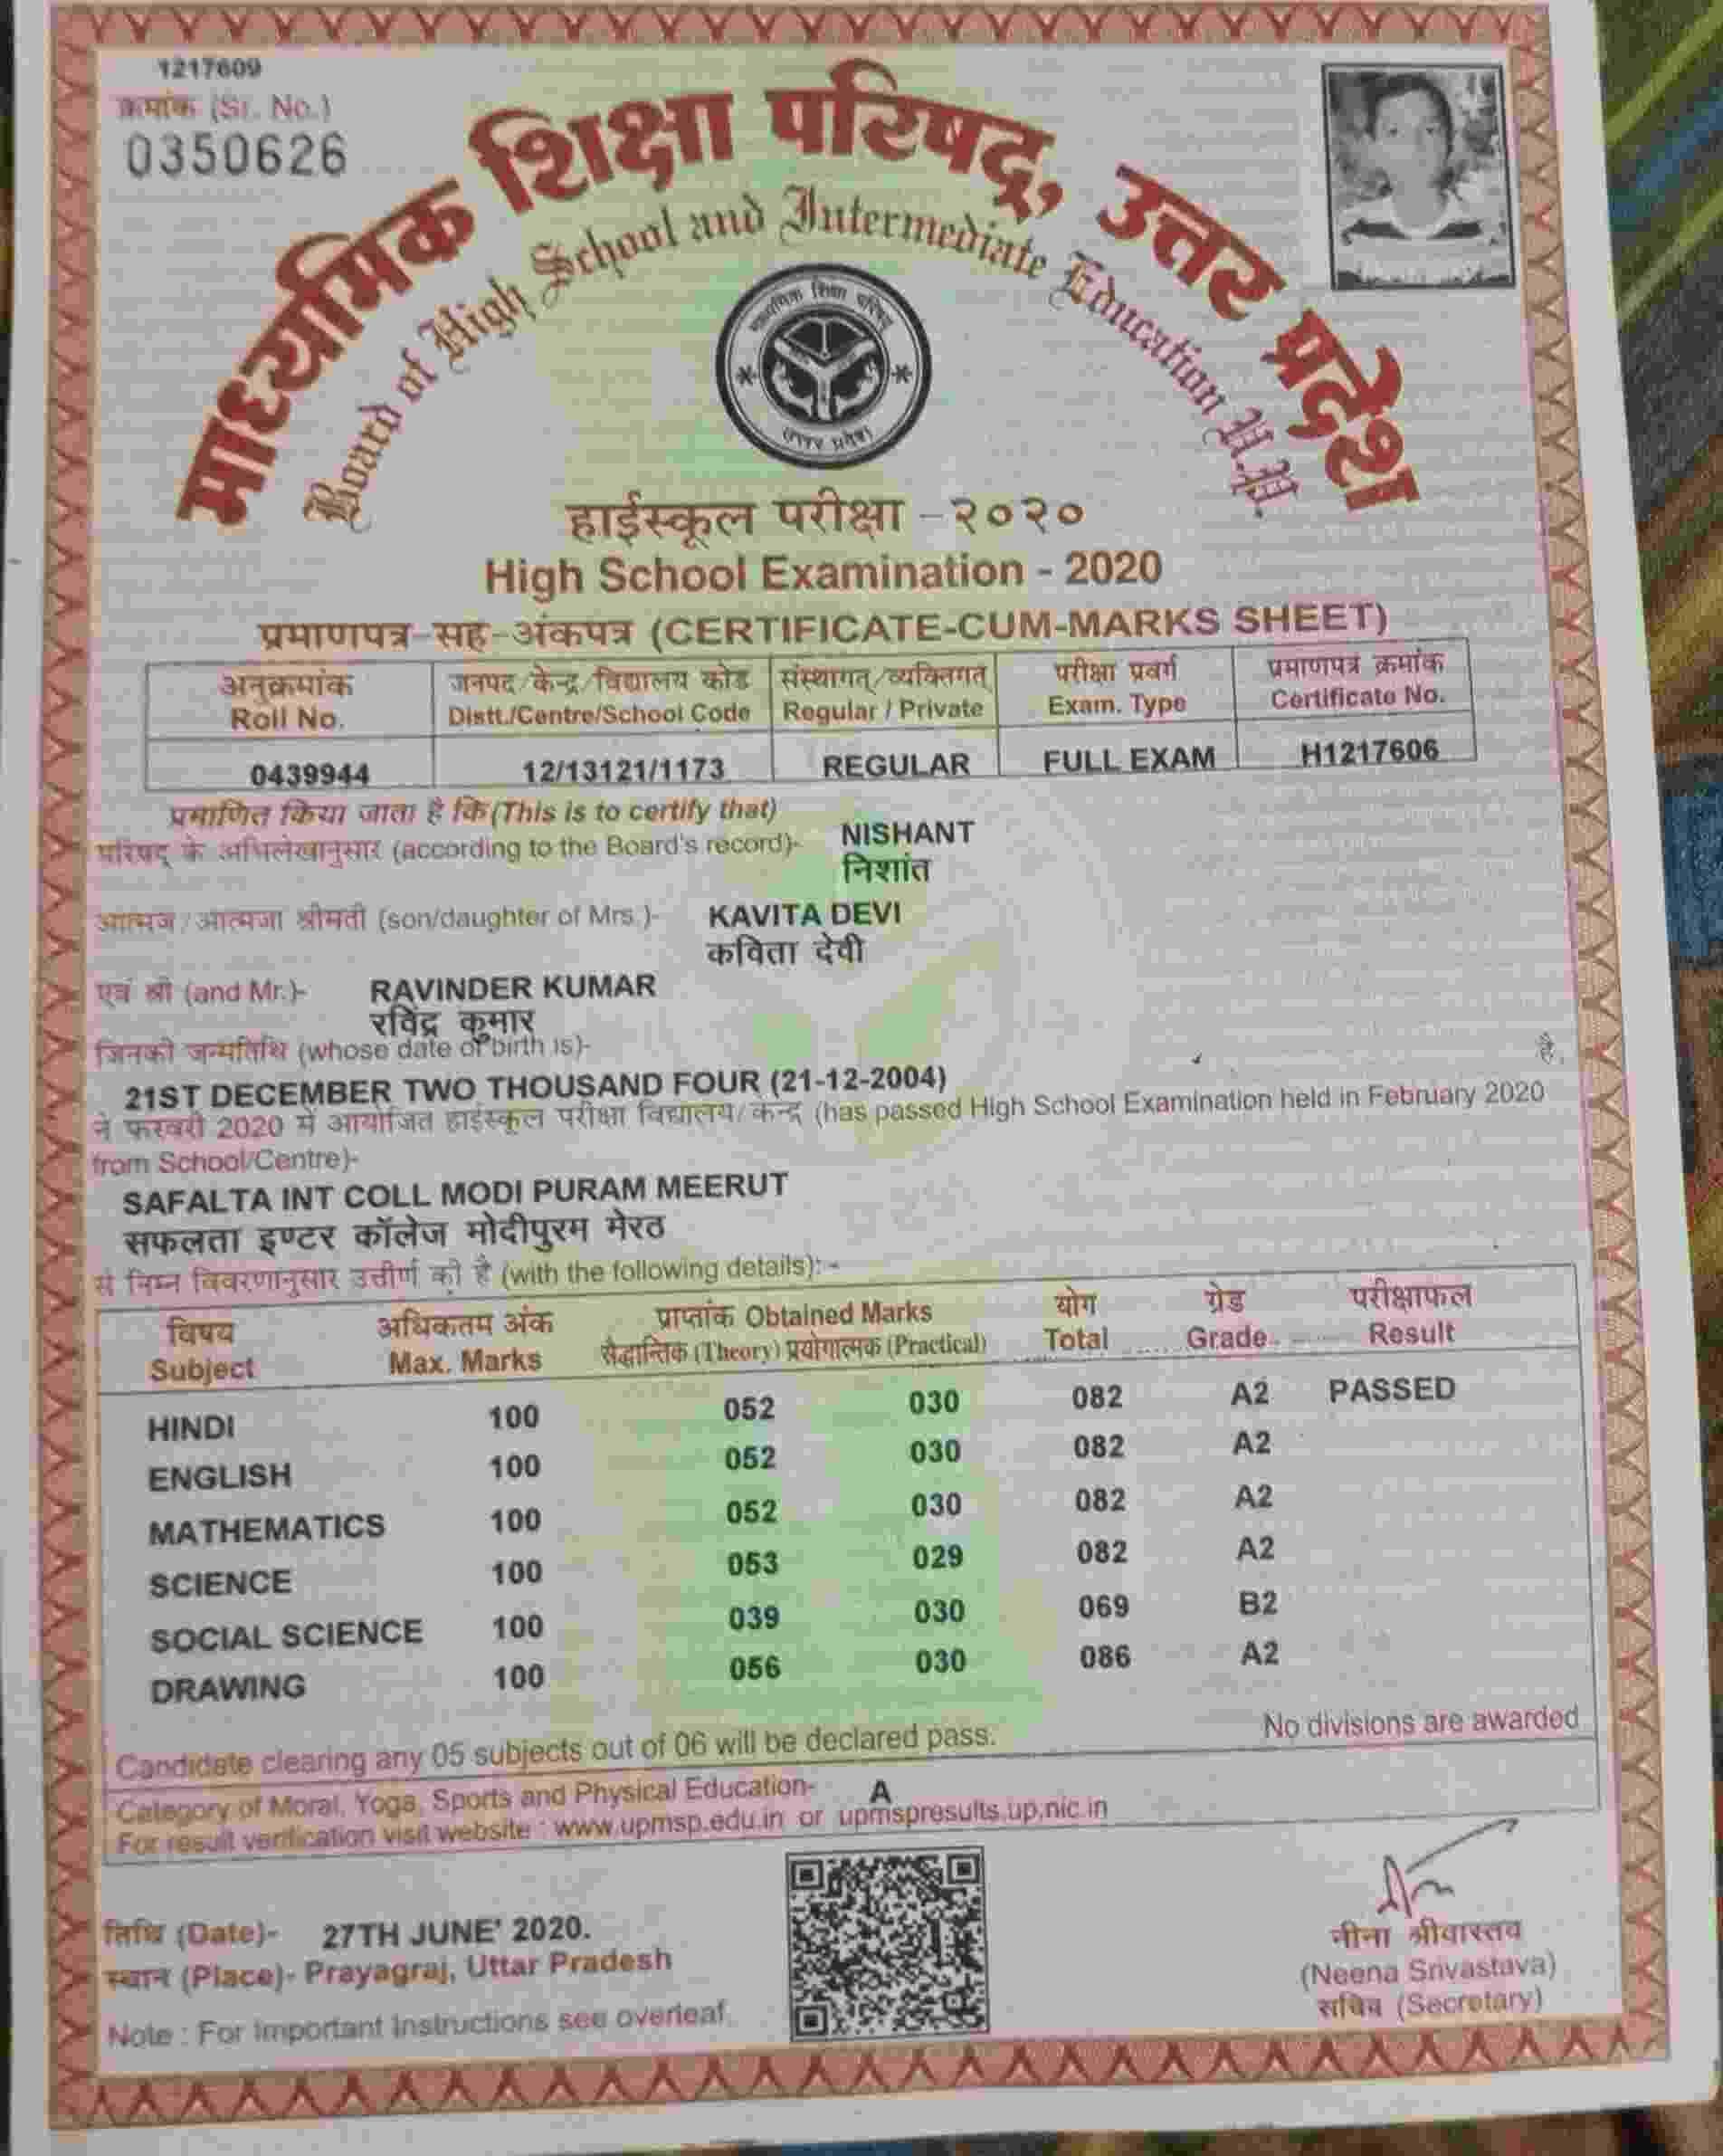 1217609
क्रमांक (Sr. No.)
0350626
माध्यमिक शिक्षा परिषद्, उत्तर प्रदेश
Board of High School and Intermediate Education U.P.
माध्यमिक शिक्षा परिषद
उत्तर प्रदेश
हाईस्कूल परीक्षा - २०२०
High School Examination - 2020
प्रमाणपत्र-सह-अंकपत्र (CERTIFICATE-CUM-MARKS SHEET)
अनुक्रमांक जनपद/केन्द्र/विद्यालय कोड संस्थागत/व्यक्तिगत परीक्षा प्रवर्ग प्रमाणपत्र क्रमांक
Roll No. Distt./Centre/School Code Regular / Private Exam. Type Certificate No.
0439944 12/13121/1173 REGULAR FULL EXAM H1217606
प्रमाणित किया जाता है कि (This is to certify that)
परिषद् के अभिलेखानुसार (according to the Board's record)- NISHANT
निशांत
आत्मज/आत्मजा श्रीमती (son/daughter of Mrs.)- KAVITA DEVI
कविता देवी
एवं श्री (and Mr.)- RAVINDER KUMAR
रविंद्र कुमार
जिनकी जन्मतिथि (whose date of birth is)- है,
21ST DECEMBER TWO THOUSAND FOUR (21-12-2004)
ने फरवरी 2020 में आयोजित हाईस्कूल परीक्षा विद्यालय/केन्द्र (has passed High School Examination held in February 2020
from School/Centre)-
SAFALTA INT COLL MODI PURAM MEERUT
सफलता इण्टर कॉलेज मोदीपुरम मेरठ
से निम्न विवरणानुसार उत्तीर्ण की है (with the following details): -
विषय अधिकतम अंक प्राप्तांक Obtained Marks योग ग्रेड परीक्षाफल
Subject Max. Marks सैद्धान्तिक (Theory) प्रयोगात्मक (Practical) Total Grade Result
HINDI 100 052 030 082 A2 PASSED
ENGLISH 100 052 030 082 A2
MATHEMATICS 100 052 030 082 A2
SCIENCE 100 053 029 082 A2
SOCIAL SCIENCE 100 039 030 069 B2
DRAWING 100 056 030 086 A2
Candidate clearing any 05 subjects out of 06 will be declared pass. No divisions are awarded
Category of Moral, Yoga, Sports and Physical Education- A
For result verification visit website : www.upmsp.edu.in or upmspresults.up.nic.in
तिथि (Date)- 27TH JUNE' 2020.
स्थान (Place)- Prayagraj, Uttar Pradesh
Note : For Important Instructions see overleaf.
नीना श्रीवास्तव
(Neena Srivastava)
सचिव (Secretary)